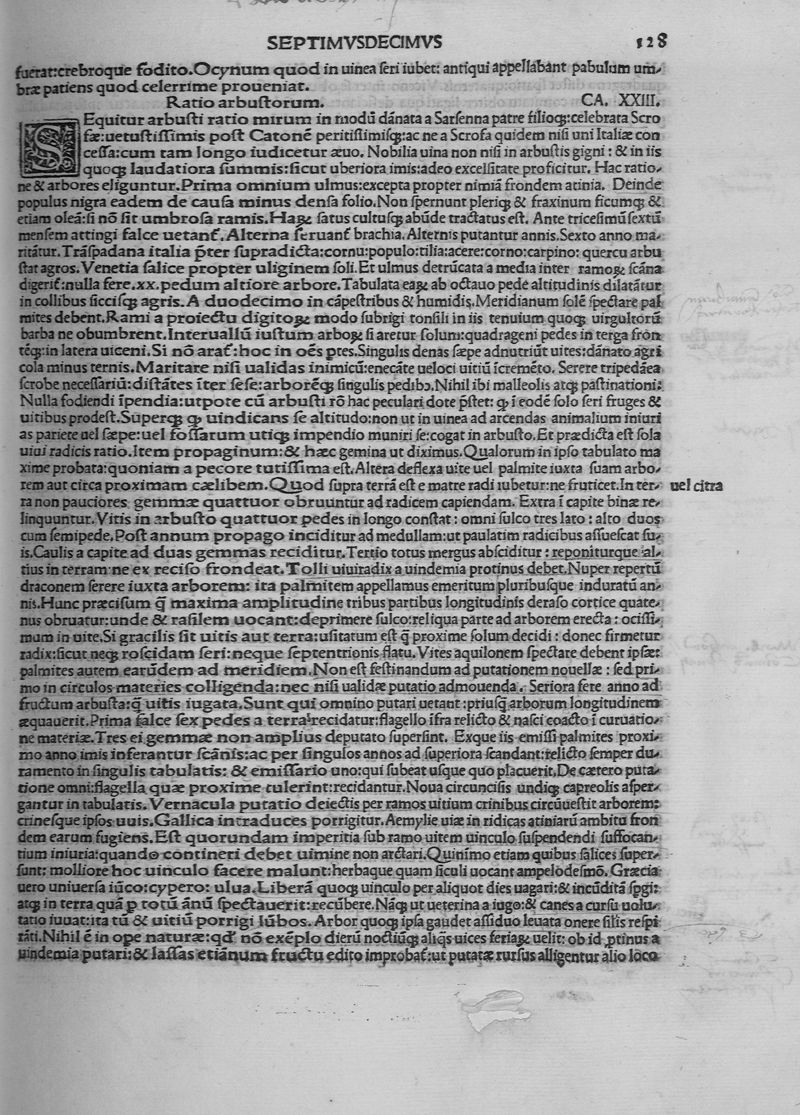 SEPTIMVSDECIMVS 128
fuerat:crebroque fodito.Ocynum quod in uinea ſeri iubet: antiqui appellabant pabulum um⸗
bræ patiens quod celerrime proueniat.
Ratio arbuſtorum. CA. XXIII.
SEquitur arbuſti ratio mirum in modū dānata a Sarſenna patre filioqꝫ:celebrata Scro
fæ:uetuſtiſſimis poſt Catonē peritiſſimiſqꝫ:ac ne a Scrofa quidem niſi uni Italiæ con
ceſſa:cum tam longo iudicetur æuo. Nobilia uina non niſi in arbuſtis gigni: & in iis
quoqꝫ laudatiora ſummis:ſicut uberiora imis:adeo excelſitate proficitur. Hac ratio⸗
ne & arbores eliguntur.Prima omnium ulmus:excepta propter nimiā frondem atinia. Deinde
populus nigra eadem de cauſa minus denſa folio.Non ſpernunt pleriqꝫ & fraxinum ficumqꝫ &
etiam oleā:ſi nō ſit umbroſa ramis.Haꝝ ſatus cultuſqꝫ abūde tractatus eſt. Ante triceſimū ſextū
menſem attingi falce uetant᷑. Alterna ſeruant᷑ brachia. Alternis putantur annis.Sexto anno ma⸗
ritātur.Trāſpadana italia p̄ter ſupradicta:cornu:populo:tilia:acere:corno:carpino: quercu arbu
ſtat agros. Venetia ſalice propter uliginem ſoli.Et ulmus detrūcata a media inter ramoꝝ ſcāna
digerit᷑:nulla fere.xx.pedum altiore arbore.Tabulata eaꝝ ab octauo pede altitudinis dilatātur
in collibus ſicciſqꝫ agris. A duodecimo in cāpeſtribus & humidis.Meridianum ſolē ſpectare pal
mites debent.Rami a proiectu digitoꝝ modo ſubrigi tonſili in iis tenuium quoqꝫ uirgultorū
barba ne obumbrent.Interuallū iuſtum arboꝝ ſi aretur ſolum:quadrageni pedes in terga fron
tēqꝫ:in latera uiceni.Si nō arat᷑:hoc in oēs ptes.Singulis denas ſæpe adnutriūt uites:dānato agri
cola minus ternis.Maritare niſi ualidas inimicū:enecāte ueloci uitiū īcremēto. Serere tripedāea
ſcrobe neceſſariū:diſtātes īter ſeſe:arborēqꝫ ſingulis pedibꝰ.Nihil ibi malleolis atqꝫ paſtinationi:
Nulla fodiendi īpendia:utpote cū arbuſti rō hac peculiari dote p̄ſtet: ꝙ ī eodē ſolo ſeri fruges &
uitibus prodeſt.Superqꝫ ꝙ uindicans ſe altitudo:non ut in uinea ad arcendas animalium iniuri
as pariete uel ſæpe:uel foſſarum utiqꝫ impendio muniri ſe:cogat in arbuſto.Et prædicta eſt ſola
uiui radicis ratio.Item propaginum:& hæc gemina ut diximus.Qualorum in ipſo tabulato ma
xime probata:quoniam a pecore tutiſſima eſt. Altera deflexa uite uel palmite iuxta ſuam arbo⸗
rem aut circa proximam cælibem.Quod ſupra terrā eſt e matre radi iubetur:ne fruticet.In ter⸗ uel citra
ra non pauciores gemmæ quattuor obruuntur ad radicem capiendam. Extra ī capite binæ re⸗
linquuntur. Vitis in arbuſto quattuor pedes in longo conſtat : omni ſulco tres lato : alto duos
cum ſemipede.Poſt annum propago inciditur ad medullam:ut paulatim radicibus aſſueſcat ſu⸗
is.Caulis a capite ad duas gemmas reciditur.Tertio totus mergus abſciditur : reponiturque al⸗
tius in terram ne ex reciſo frondeat. Tolli uiuiradix a uindemia protinus debet.Nuper repertū
draconem ſerere iuxta arborem: ita palmitem appellamus emeritum pluribuſque induratū an⸗
nis.Hunc præciſum q̄ maxima amplitudine tribus partibus longitudinis deraſo cortice quate⸗
nus obruatur:unde & raſilem uocant:deprimere ſulco:reliqua parte ad arborem erecta : ociſſi⸗
mum in uite.Si gracilis ſit uitis aut terra:uſitatum eſt q̄ proxime ſolum decidi : donec firmetur
radix:ſicut neqꝫ roſcidam ſeri:neque ſeptentrionis flatu. Vites aquilonem ſpectare debent ipſæ:
palmites autem earūdem ad meridiem.Non eſt feſtinandum ad putationem nouellæ : ſed pri⸗
mo in circulos materies colligenda:nec niſi ualidæ putatio admouenda . Seriora fere anno ad
fructum arbuſta:q̄ uitis iugata.Sunt qui omnino putari uetant :priuſq̄ arborum longitudinem
æquauerit.Prima falce ſex pedes a terra recidatur:flagello īfra relicto & naſci coacto ī curuatio⸗
ne materiæ.Tres ei gemmæ non amplius deputato ſuperſint. Exque iis emiſſi palmites proxi⸗
mo anno imis inferantur ſcānis:ac per ſingulos annos ad ſuperiora ſcandant:relicto ſemper du⸗
ramento in ſingulis tabulatis: & emiſſario uno:qui ſubeat uſque quo placuerit.De cætero puta⸗
tione omni:flagella quæ proxime tulerint:recidantur.Noua circunciſis undiqꝫ capreolis aſper⸗
gantur in tabulatis. Vernacula putatio deiectis per ramos uitium crinibus circūueſtit arborem:
crineſque ipſos uuis.Gallica in traduces porrigitur.Aemylie uiæ in ridicas atiniarū ambitu fron
dem earum fugiens.Eſt quorundam imperitia ſub ramo uitem uinculo ſuſpendendi ſuffocan⸗
tium iniuria:quando contineri debet uimine non arctari.Quinīmo etiam quibus ſalices ſuper⸗
ſunt: molliore hoc uinculo facere malunt:herbaque quam ſiculi uocant ampelodeſmō. Græcia
uero uniuerſa iūco:cypero: ulua.Liberā quoqꝫ uinculo per aliquot dies uagari:& incūditā ſpgi:
atqꝫ in terra quā p totū ānū ſpectauerit:recūbere.Nāqꝫ ut ueterina a iugo:& canes a curſu uolu⸗
tatio iuuat:ita tū & uitiū porrigi lūbos. Arbor quoqꝫ ipſa gaudet aſſiduo leuata onere ſilis reſpi
rāti.Nihil ē in ope naturæ:qd᷑ nō exēplo dierū noctiūqꝫ aliqͣs uices feriaꝝ uelit: ob id ꝓtinus a
uindemia putari:& laſſas etiānum fructu edito improbat᷑:ut putatæ rurſus alligentur alio loco